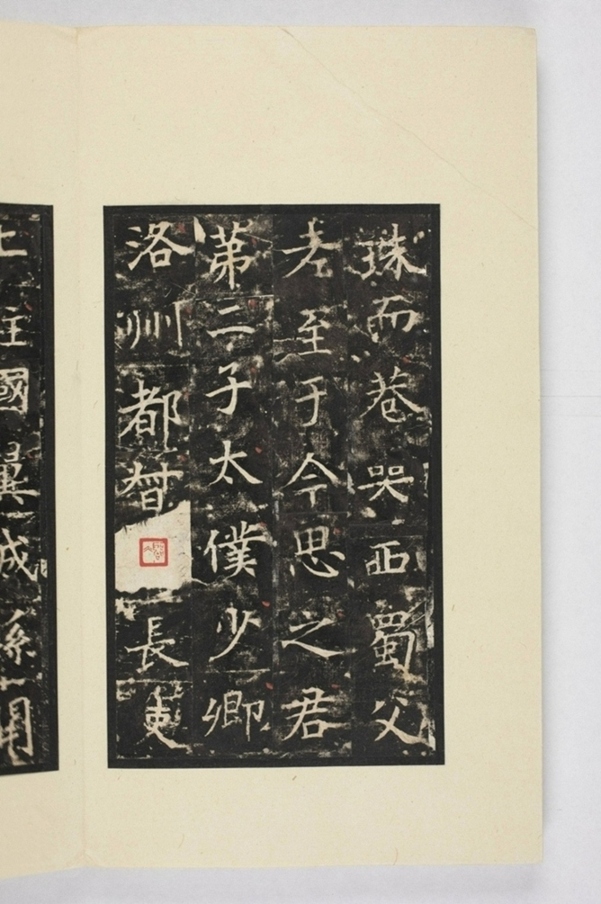 珠而巷哭西蜀父
老至于今思之君
第二子太僕少卿
洛州都督長史
上柱國翼成孫開